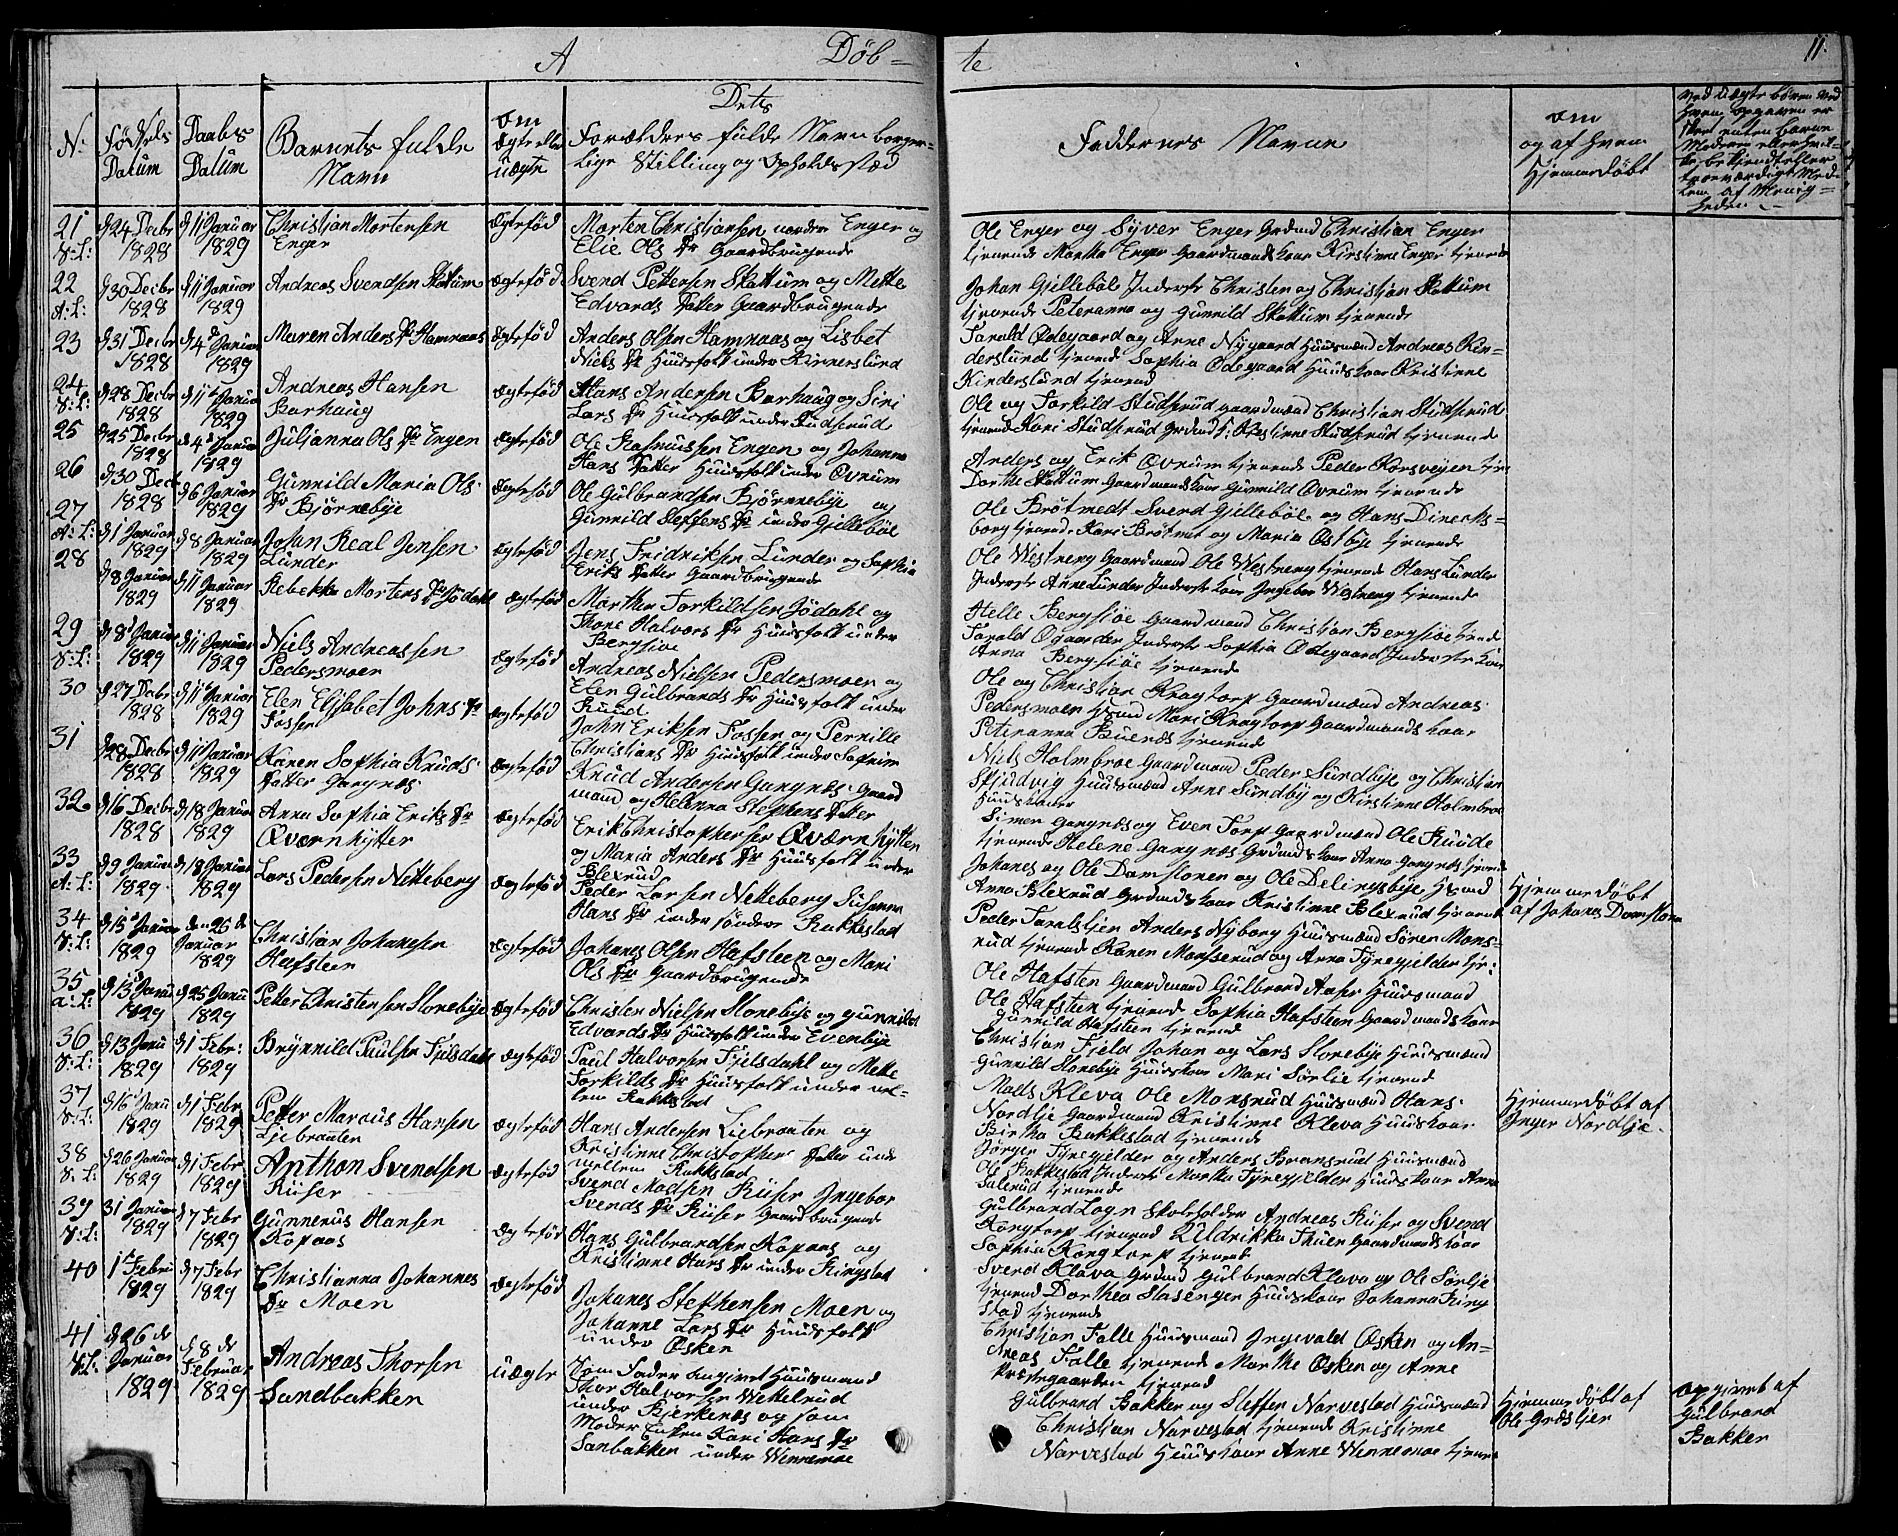 A Døb= te 11.
N: Fødsels Datum
Daabs Datum
Barnets fulde Navn
om ægte eller uægte
Dets Forældres fulde Navn borgerlige Stilling og Opholdssted
Faddernes Navne
om og af hvem Hjemmedøbt
ved uægte børn ved hvem opgaven er skeet enten barnets Moder eller hvilke bekjendte eller troeværdige Medlem af Menigheden
21 d 24 Decbr 1828 d 11 Januar 1829 Christian Mortensen Enger ægtefød Morten Christiansen nordre Enger og
Elie Ols Dr Gaardbrugende
Ole Enger og Syver Enger Christian Enger
tjenende Martha Enger Gaardmandskaar Kirstinne Enger tjenende
22 d 30 Decbr 1828 d 11 Januar 1829 Andreas Svendsen Skattum ægtefød Svend Pettersen Skattum og Mette
Edvards Datter Gaardbrugende
Johan Gillebøl Inderst Christen og Christian Skattum
tjenende Peteranna og Gunnild Skattum tjenende
23 d 31 Decbr 1828 d 4 Januar 1829 Maren Anders Dr Hamnaas ægtefød Anders Olsen Hamnaas og Lisbet
Niels Dr Huusfolk under Kinnerslund
Tarald Ødegaard og Arne Nygaard Huusmænd Andreas Kin-
derslund tjenend Sophia Ødegaard Huuskaar Kristinne
Kinderslund tjenend
24 d 28 Decbr 1828 d 11 Januar 1829 Andreas Hansen Barhaug ægtefød Hans Andersen Barhaug og Siri
Lars Dr Huusfolk under Studsrud
Ole og Torkild Studsrud gaardmænd Christian Studsrud
tjenende Kari Studsrud Kristinne Studsrud tjenende
25 d 25 Decbr 1828 d 4 Januar 1829 Juljanna Ols Dr Engen ægtefød Ole Rasmussen Engen og Johanna
Hans Datter Huusfolk under Øvrum
Anders og Erik Øvrum tjenende Peder Korsvejen
Dorthe Skattum Gaardmandskaar Gunnild Øvrum tjenende
26 d 30 Decb 1828 d 6 Januar 1829 Gunnild Maria Ols Dr Bjørnebye ægtefød Ole Gulbrandsen Bjørnebye og
Gunnild Steffens Dr under Gillebøl
Ole Brøtmedt Svend Gillebøl og Hans Direchs-
borg tjenend Kari Brøtmet og Maria Østbye tjenende
27 d 1 Januar 1829 d 8 Januar 1829 Johan Real Jensen Lunder ægtefød Jens Fridriksen Lunder og Sophia
Eriks Datter Gaardbrugende
Ole Westreng Gaardmand Ole Westreng tjenende Hans Lunder
Inderst Anne Lunder Inderst Kaar Ingebor Westreng tjenende
28 d 8 Januar 1829 d 11 Januar 1829 Rebekka Mortens Dr Jødahl ægtefød Morthen Torkildsen Jødahl og
Thore Halvors Dr Huusfolk under
Bergsiøe
Helle Bergsiøe Gaardmand Christian Bergsiøe
Tarald Øgaarden Inderst Sophia Ødegaard Inderst Kaar
Anna Bergsiøe tjenende
29 d 8 Januar 1829 d 11 Januar 1829 Niels Andreassen Pedersmoen ægtefød Andreas Nielsen Pedersmoen og
Elen Gulbrands Dr Huusfolk under
Ruud
Ole og Christian Kragtorp Gaardmænd Andreas
Pedersmoen Mari Kragtorp Gaardmands kaar
Peteranna Buenæs tjenende
30 d 27 Decbr 1828 d 11 Januar 1829 Elen Elisabet Johns Dr Fossen ægtefød John Eriksen Fossen og Pernille
Christians Dr Huusfolk under
Niels Holmbroe Gaardmand Peder Sundbye og Christian
Huusmænd Anne Sundby og Kirstinne Holmbroe
Huuskaar
31 d 28 Decbr 1828 d 11 Januar 1829 Karen Sophia Knuds Datter Gangnæs ægtefød Knud Andersen Gangnæs Gaard
mand og Helenna Stephens Datter
Simen Gangnæs og Even Torp Gaardmænd Ole Ruude
tjenende Helene Gangnæs Anna Gangnæs tjenende
32 d 16 Decbr 1828 d 18 Januar 1829 Anna Sophia Eriks Dr Qværnhytten ægtefød Erik Christophersen Qværnhytten
og Maria Anders Dr Huusfolk under
Blexrud
Johanes og Ole Damstonen og Ole Delingsbye
Anna Blexrud Kristinne Blexrud tjenende
Hjemmedøbt af Johanes Damstonen
33 d 9 Januar 1829 d 18 Januar 1829 Lars Pedersen Netteberg ægtefød Peder Larsen Netteberg Susanna
Hans Dr under søndre Rakkestad
Peder Anders Nyborg Huusmænd Søren Mons-
rud tjenend Karen Monserud og Anna Tyregjelder
34 d 15 Januar 1829 den 25 de Januar 1829 Christian Johansen Hafsteen ægtefød Johanes Olsen Hafsteen og Mari
Ols Dr Gaardbrugende
Ole Hafsten Gaardmand Gulbrand Aaser Huusmand
Ole Hafsten tjenende Sophia Hafsteen Gaardmandskaar
Gunnild Hafsteen tjenende
35 d 13 Janu 1829 d 25 Janu 1829 Petter Christensen Stonebye ægtefød Christen Nielsen Stonebye og gunnild
Edvards Dr Huusfolk under Evenbye
Christian Fjeld Johan og Lars Stonebye Huusmænd
Gunnild Stonebye Huuskaar Mari Sørlie tjenend
36 d 13 Janu 1829 d 1 Febr: 1829 Brynnild Paulsen Fjelsdahl ægtefød Paul Halvorsen Fjelsdahl og Mette
Torkilds Dr Huusfolk under mel-
lem Rakkestad
Mads Kleva Ole Monsrud Huusmænd Hans
Nordlie Gaardmand Kristinne Kleva Huuskaar
Birtha Bakkestad tjenende
37 d 16 Janu 1829 d 1 Febr 1829 Petter Marcus Hansen Liebraaten ægtefød Hans Andersen Liebraaten og
Kristinne Christophers Datter under
mellem Rakkestad
Jørgen Tyregjelder og Anders Bransrud Huusmænd
Ole Bakkestad Inderst Martha Tyregjelder Huuskaar Anna
Salerud tjenende
Hjemmedøbt af Inger Nordlie
38 d 26 Januar 1829 d 1 Febr 1829 Anthon Svendsen Kiiser ægtefød Svend Madsen Kiiser Ingebor
Svends Dr Kiiser Gaardbrugende
Gulbrand Logn Skoleholder Andreas Kiiser og Svend
Kongtorp tjenend Thuen Gaardmandskaar
Sophia Kongtorp tjenend
39 31 Januar 1829 d 7 Febr 1829 Gunnerus Hansen Kopaas ægtefød Hans Gulbrandsen Kopaas og
Kristinne Hans Dr under Ringstad
Svend Klava Gulbrand Klava og Ole Sørlie
tjenend Dorthea Stasenger Huuskaar Johanna Ring
stad tjenende
40 1 Febru 1829 d 7 Febr 1829 Christianna Johannes Dr Moen ægtefød Johanes Stephensen Moen og
Johanne Lars Dr Huusfolk
under Øsken
Christian Falle Huusmand Ingevald Øsken og An-
dreas Falle tjenend Marthe Øsken og Anne
Præstegaarden tjenend
41 d 26 de Januar 1829 d 8 de Februar 1829 Andreas Thorsen Sandbakken uægte Som Fader angivet Huusmand
Thor Halvorsen Wettelrud
under Bjerkenæs og som
Moder Enken Kari Hans Dr
Sanbakken under Winnemoe
Gulbrand Bakker og Steffen Narvestad Huusmænd
Christian Narvestad tjenende Kristinne
Narvestad Huuskaar Anne Winnemoe tjenend
Hjemmedøbt af Ole Grøslier
opgivet af Gulbrand Bakker